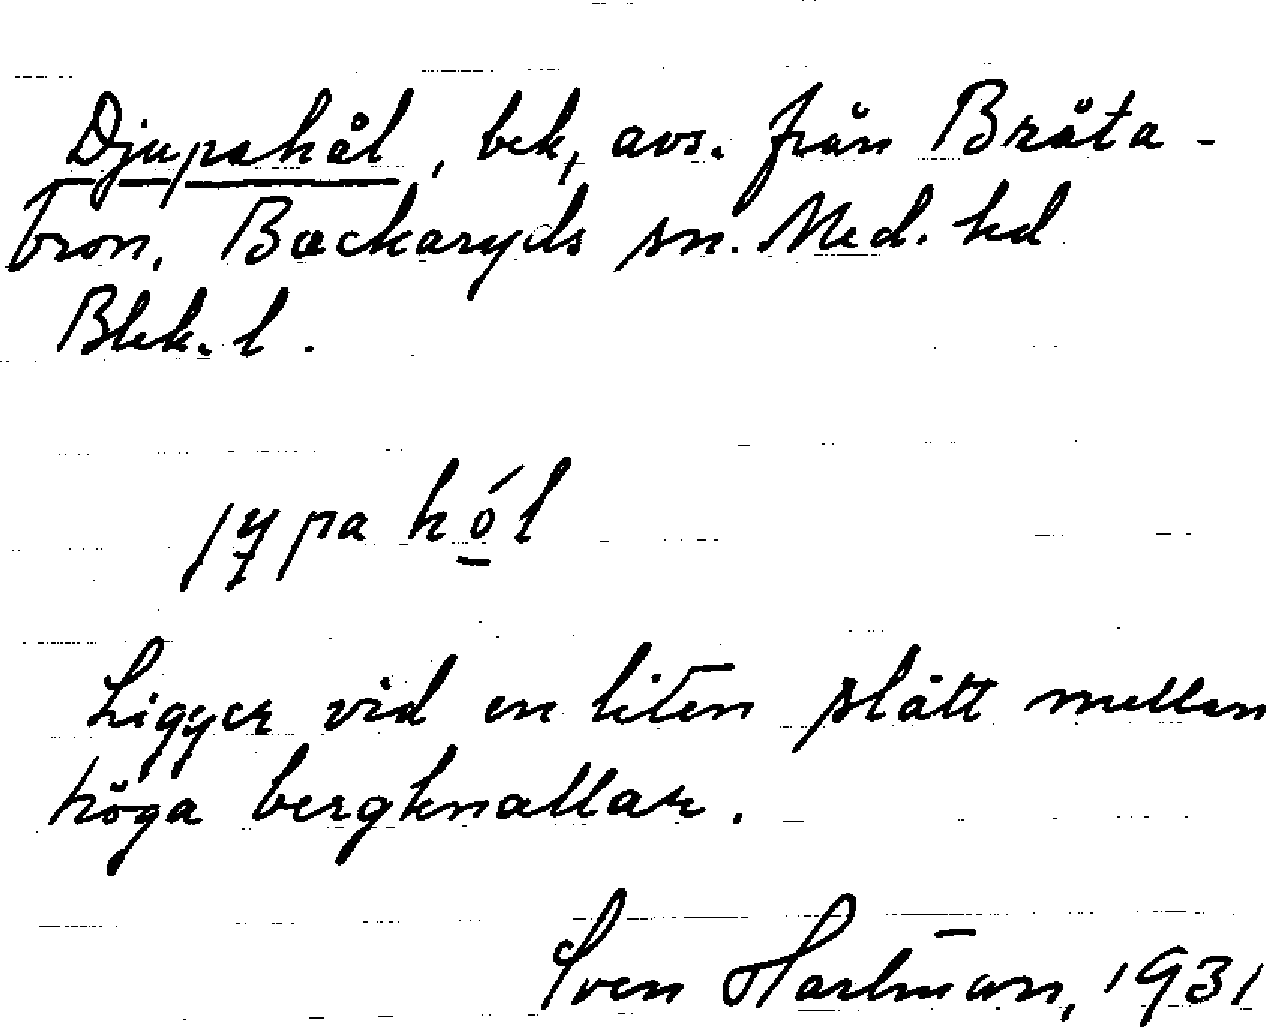 Djupahål, bek, avs. från Bråta-
bron, Backaryds sn. Med. hd
Blek. l.
jypa hól
Ligger vid en liten slätt mellan
höga bergknallar.
Sven Hartman, 1931